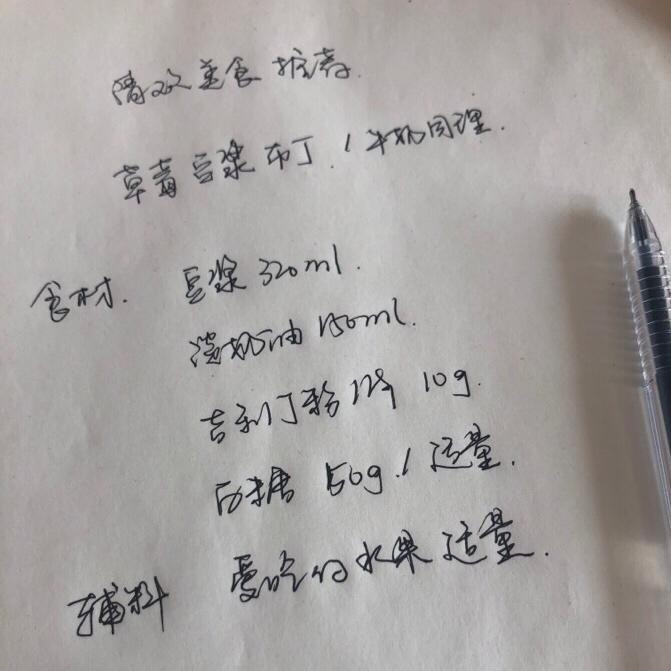 美食推荐.
草莓豆浆布丁 / 牛奶同理.
食材. 豆浆 320ml.
淡奶油 150ml.
吉利丁粉 10g.
白糖 50g / 适量.
辅料 爱吃的水果 适量.